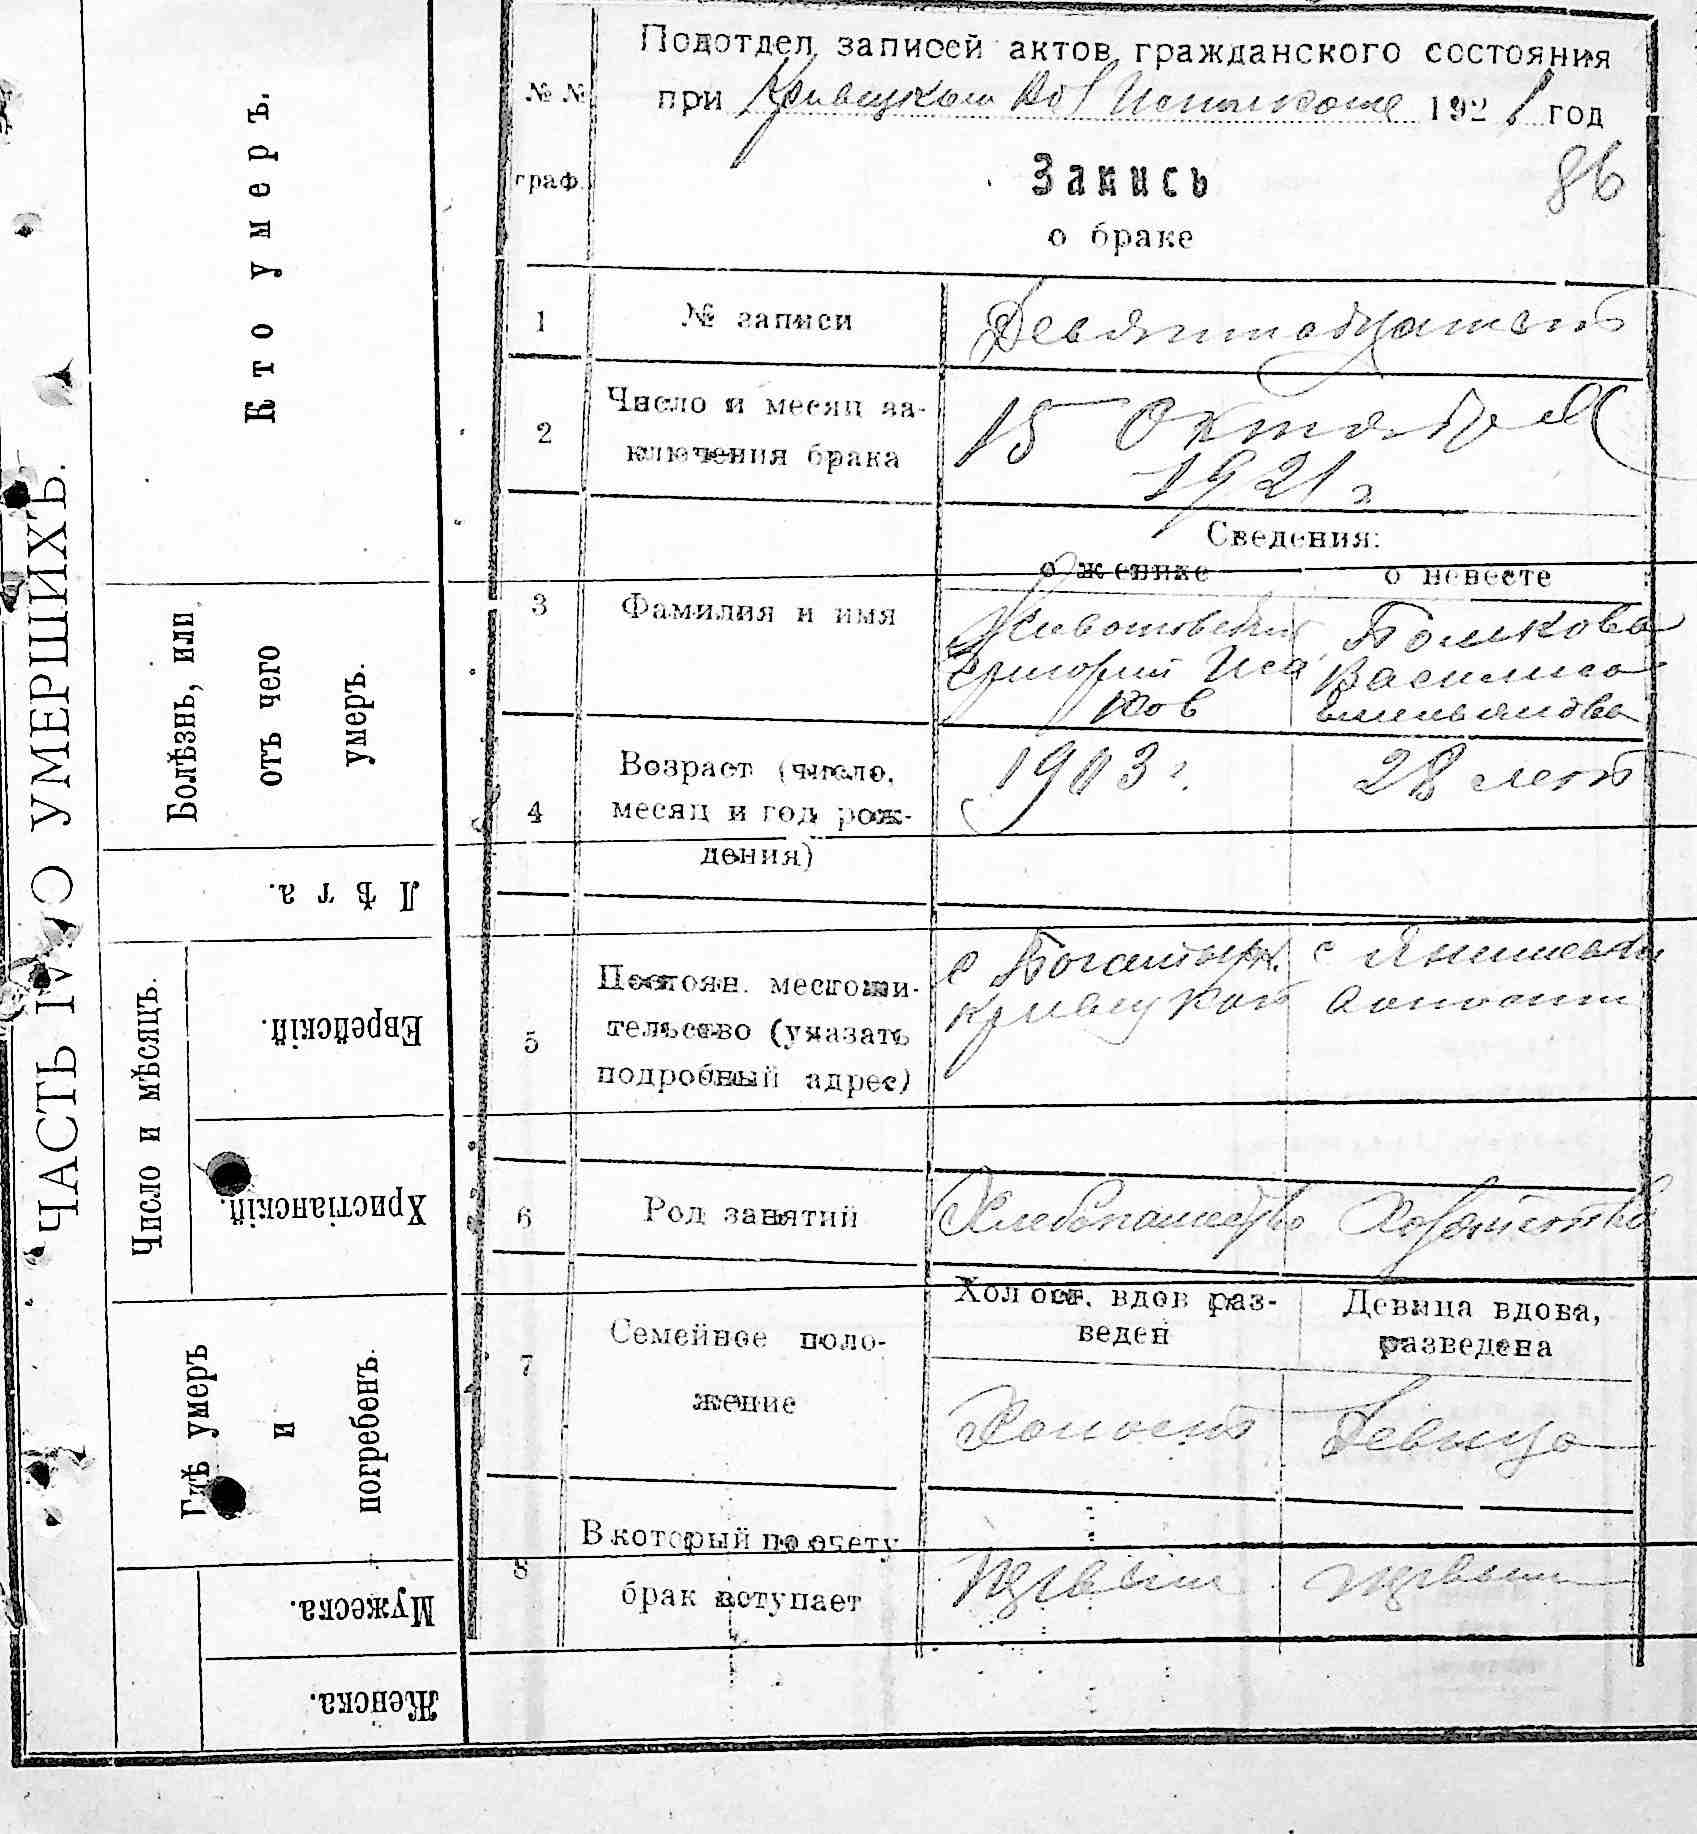 ЧАСТЬ О УМЕРШИХЪ.
Кто умеръ.
Болѣзнь, или
отъ чего
умеръ.
Лѣта.
Число и мѣсяцъ.
Еврейскій.
Христіанскій.
Гдѣ умеръ
и
погребенъ.
Мужеска.
Женска.
Подотдел записей актов гражданского состояния
при Кривецком Исполкоме 1921 год
№ №
граф.
Запись 86
о браке
1 № записи Девятнадцатый
2 Число и месяц за-
ключения брака
15 Октября
1921 г
Сведения:
о женихе о невесте
3 Фамилия и имя
Животовский Бомкова
Григорий Иса Василиса
ков Емельянова
4 Возраст (число,
месяц и год рож-
дения)
1903 г. 28 лет
5 Постоян. местожи-
тельство (указать
подробный адрес)
с Богатырк. с Янишевки
Кривецкой волости
6 Род занятий Хлебопашество Хозяйство
7 Семейное поло-
жение
Холост. вдов раз-
веден
Девица вдова,
разведена
Холост Девица
8 В который по счету
брак вступает
первый первый